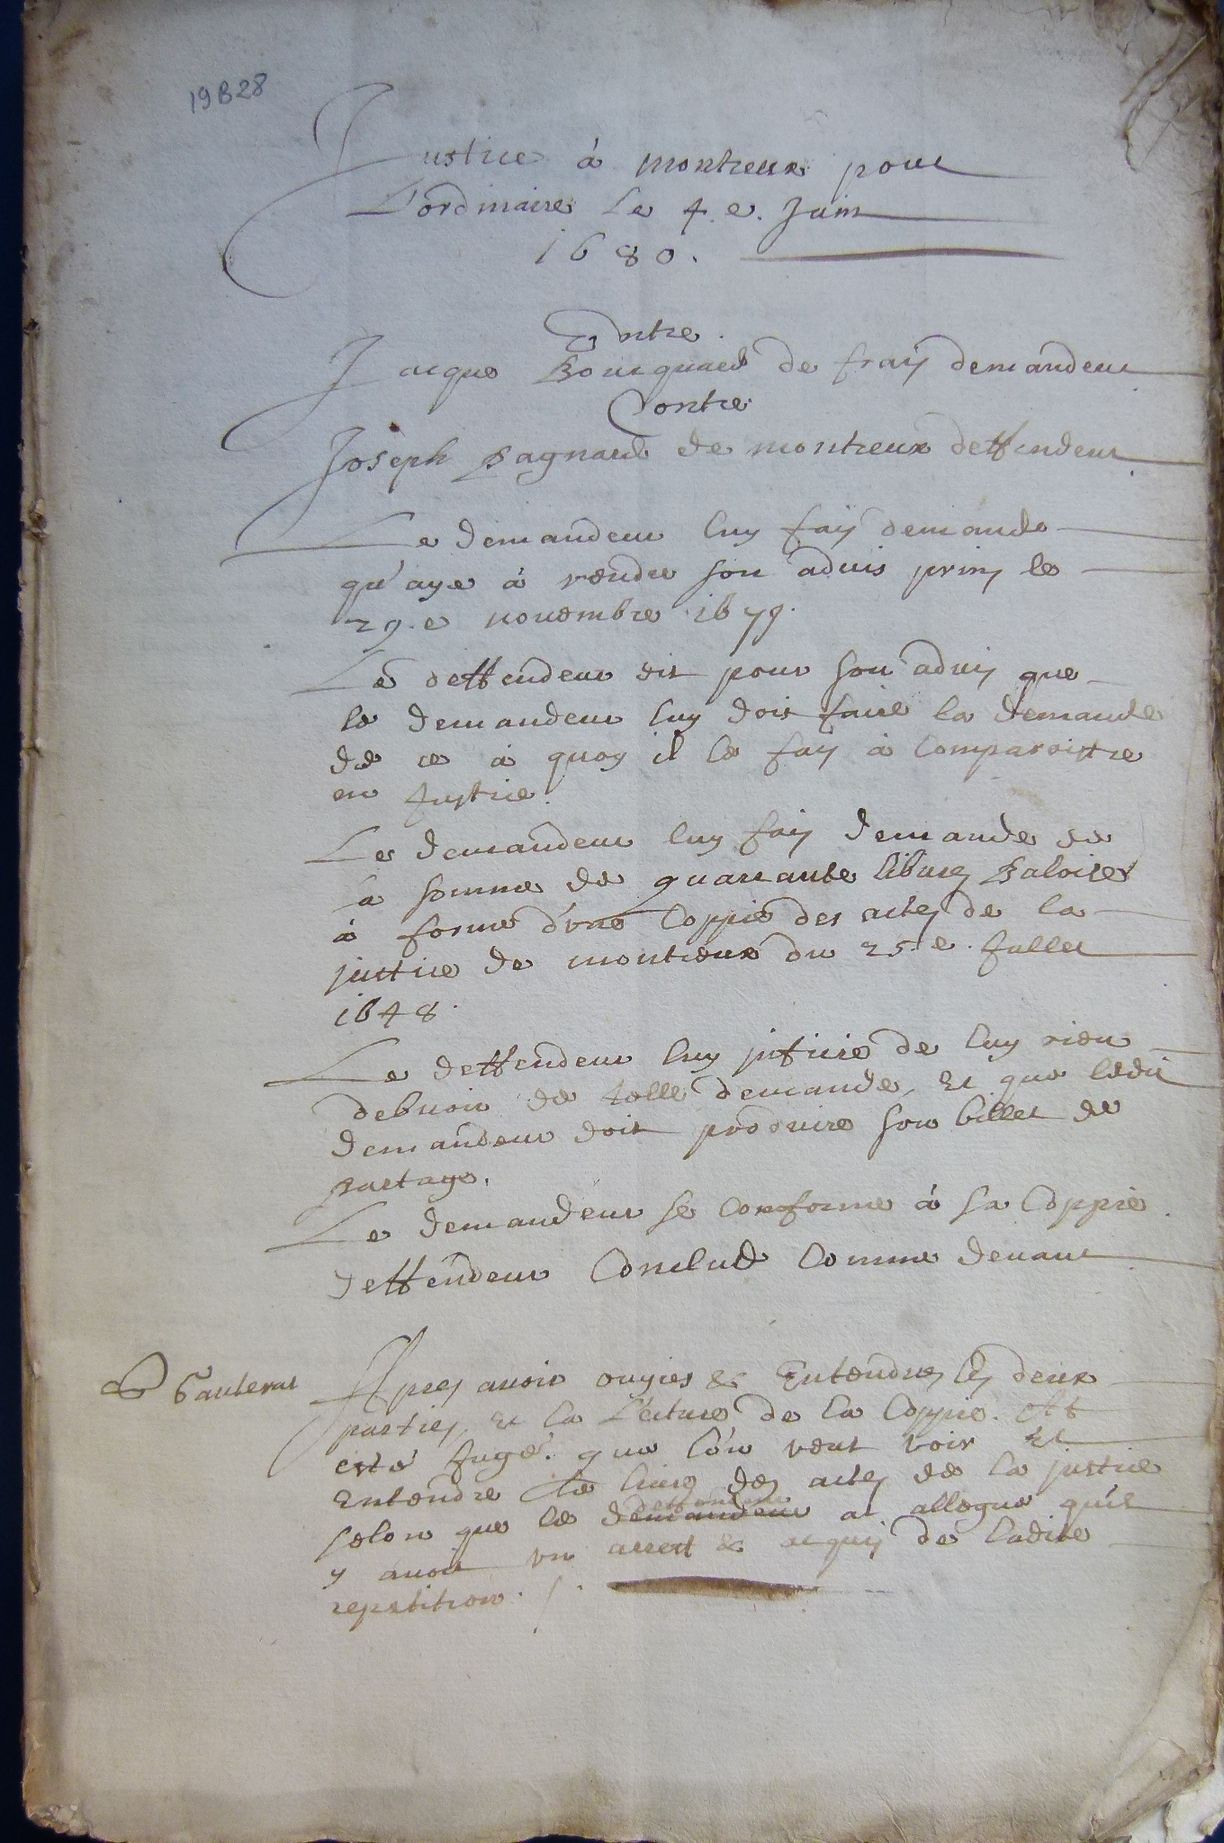 19B28
Justice à montreux pour
L'ordinaire Le 4.e. Juin
1680.
Entre
Jacque Bourquard de fraÿ demandeur
Contre
Joseph Pagnard de montreux deffendeur
Le demandeur luy faÿ demande
qu'aye à rendre son aduis prins le
29.e nouembre 1679.
Le deffendeur dit pour son aduis que
le demandeur luy doit faire la demande
de ce à quoy il le faÿ à Comparoistre
en Justice.
Le demandeur luy faÿ demande de
la somme de quarante liburs Baloises
à forme d'vne Coppie des actes de la
justice de montreux du 25.e. Jullet
1648.
Le deffendeur luy de luy rien
debuoir de telle demande, Et que ledit
demandeur doit produire son billet de
partage.
Le demandeur se Conforme à sa Coppie.
deffendeur Conclud Comme deuant
Apres auoir ouyies & Entendues les deux
parties, Et la Lecture de la Coppie. At
esté Jugé. que l'on veut voir Et
Entendre Le liure des actes de la justice
deffendeur
selon que le demandeur at allegue qu'il
y auoit vn arrest & acquis de ladite
repetition ./.